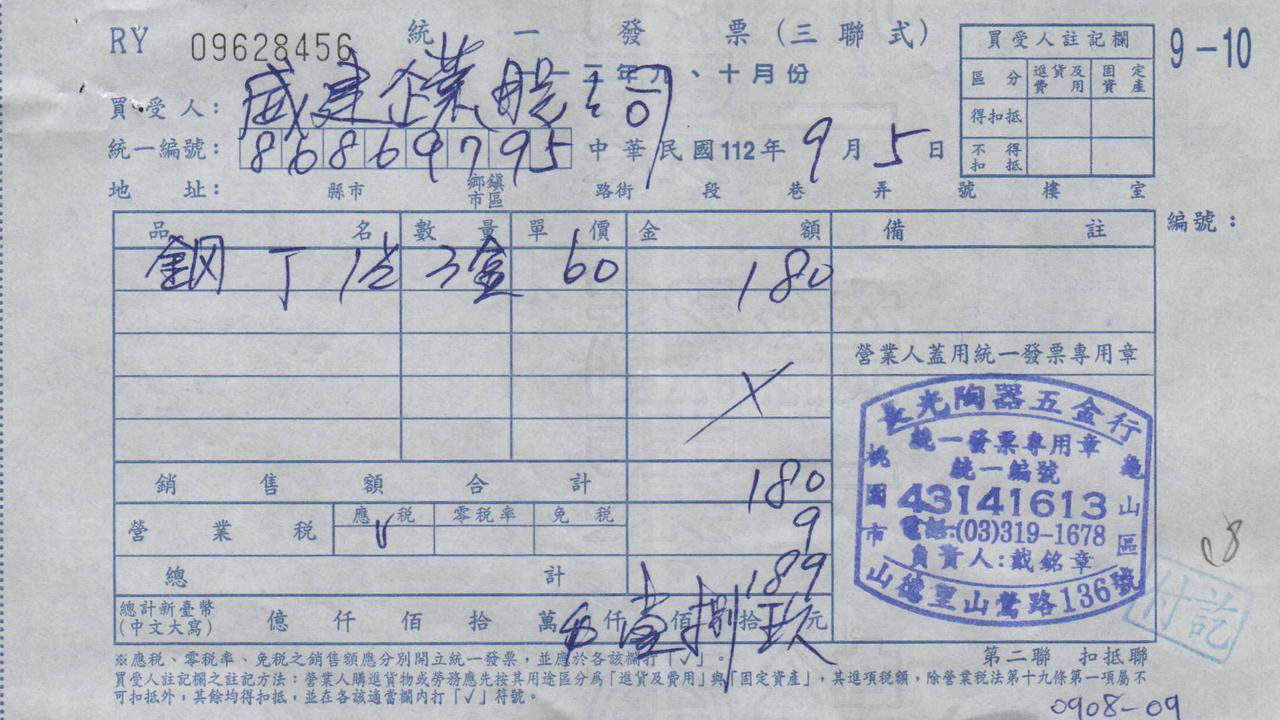 RY 09628456 統一發票(三聯式)
一一二年九、十月份
9-10
買受人: 威建企業股
統一編號: 86869795 中華民國112年9月5日
地址: 縣市 鄉鎮市區 路街 段 巷 弄 號 樓 室
買受人註記欄
區分 進貨及費用 固定資產
得扣抵
不得扣抵
編號:
品名 數量 單價 金額 備註
鋼丁 3盒 60 180
營業人蓋用統一發票專用章
銷售額合計 180
營業稅 應稅 V 零稅率 免稅 9
總計 189
總計新臺幣(中文大寫) 億 仟 佰 拾 萬 仟 壹佰 捌拾 玖元
長光陶器五金行
統一發票專用章
統一編號
43141613
電話:(03)319-1678
負責人:戴銘章
桃園市
龜山區
山德里山鶯路136號
付訖
※應稅、零稅率、免稅之銷售額應分別開立統一發票,並應於各該欄打「√」。
第二聯 扣抵聯
買受人註記欄之註記方法:營業人購進貨物或勞務應先按其用途區分為「進貨及費用」與「固定資產」,其進項稅額,除營業稅法第十九條第一項屬不
可扣抵外,其餘均得扣抵,並在各該適當欄內打「√」符號。
0908-09